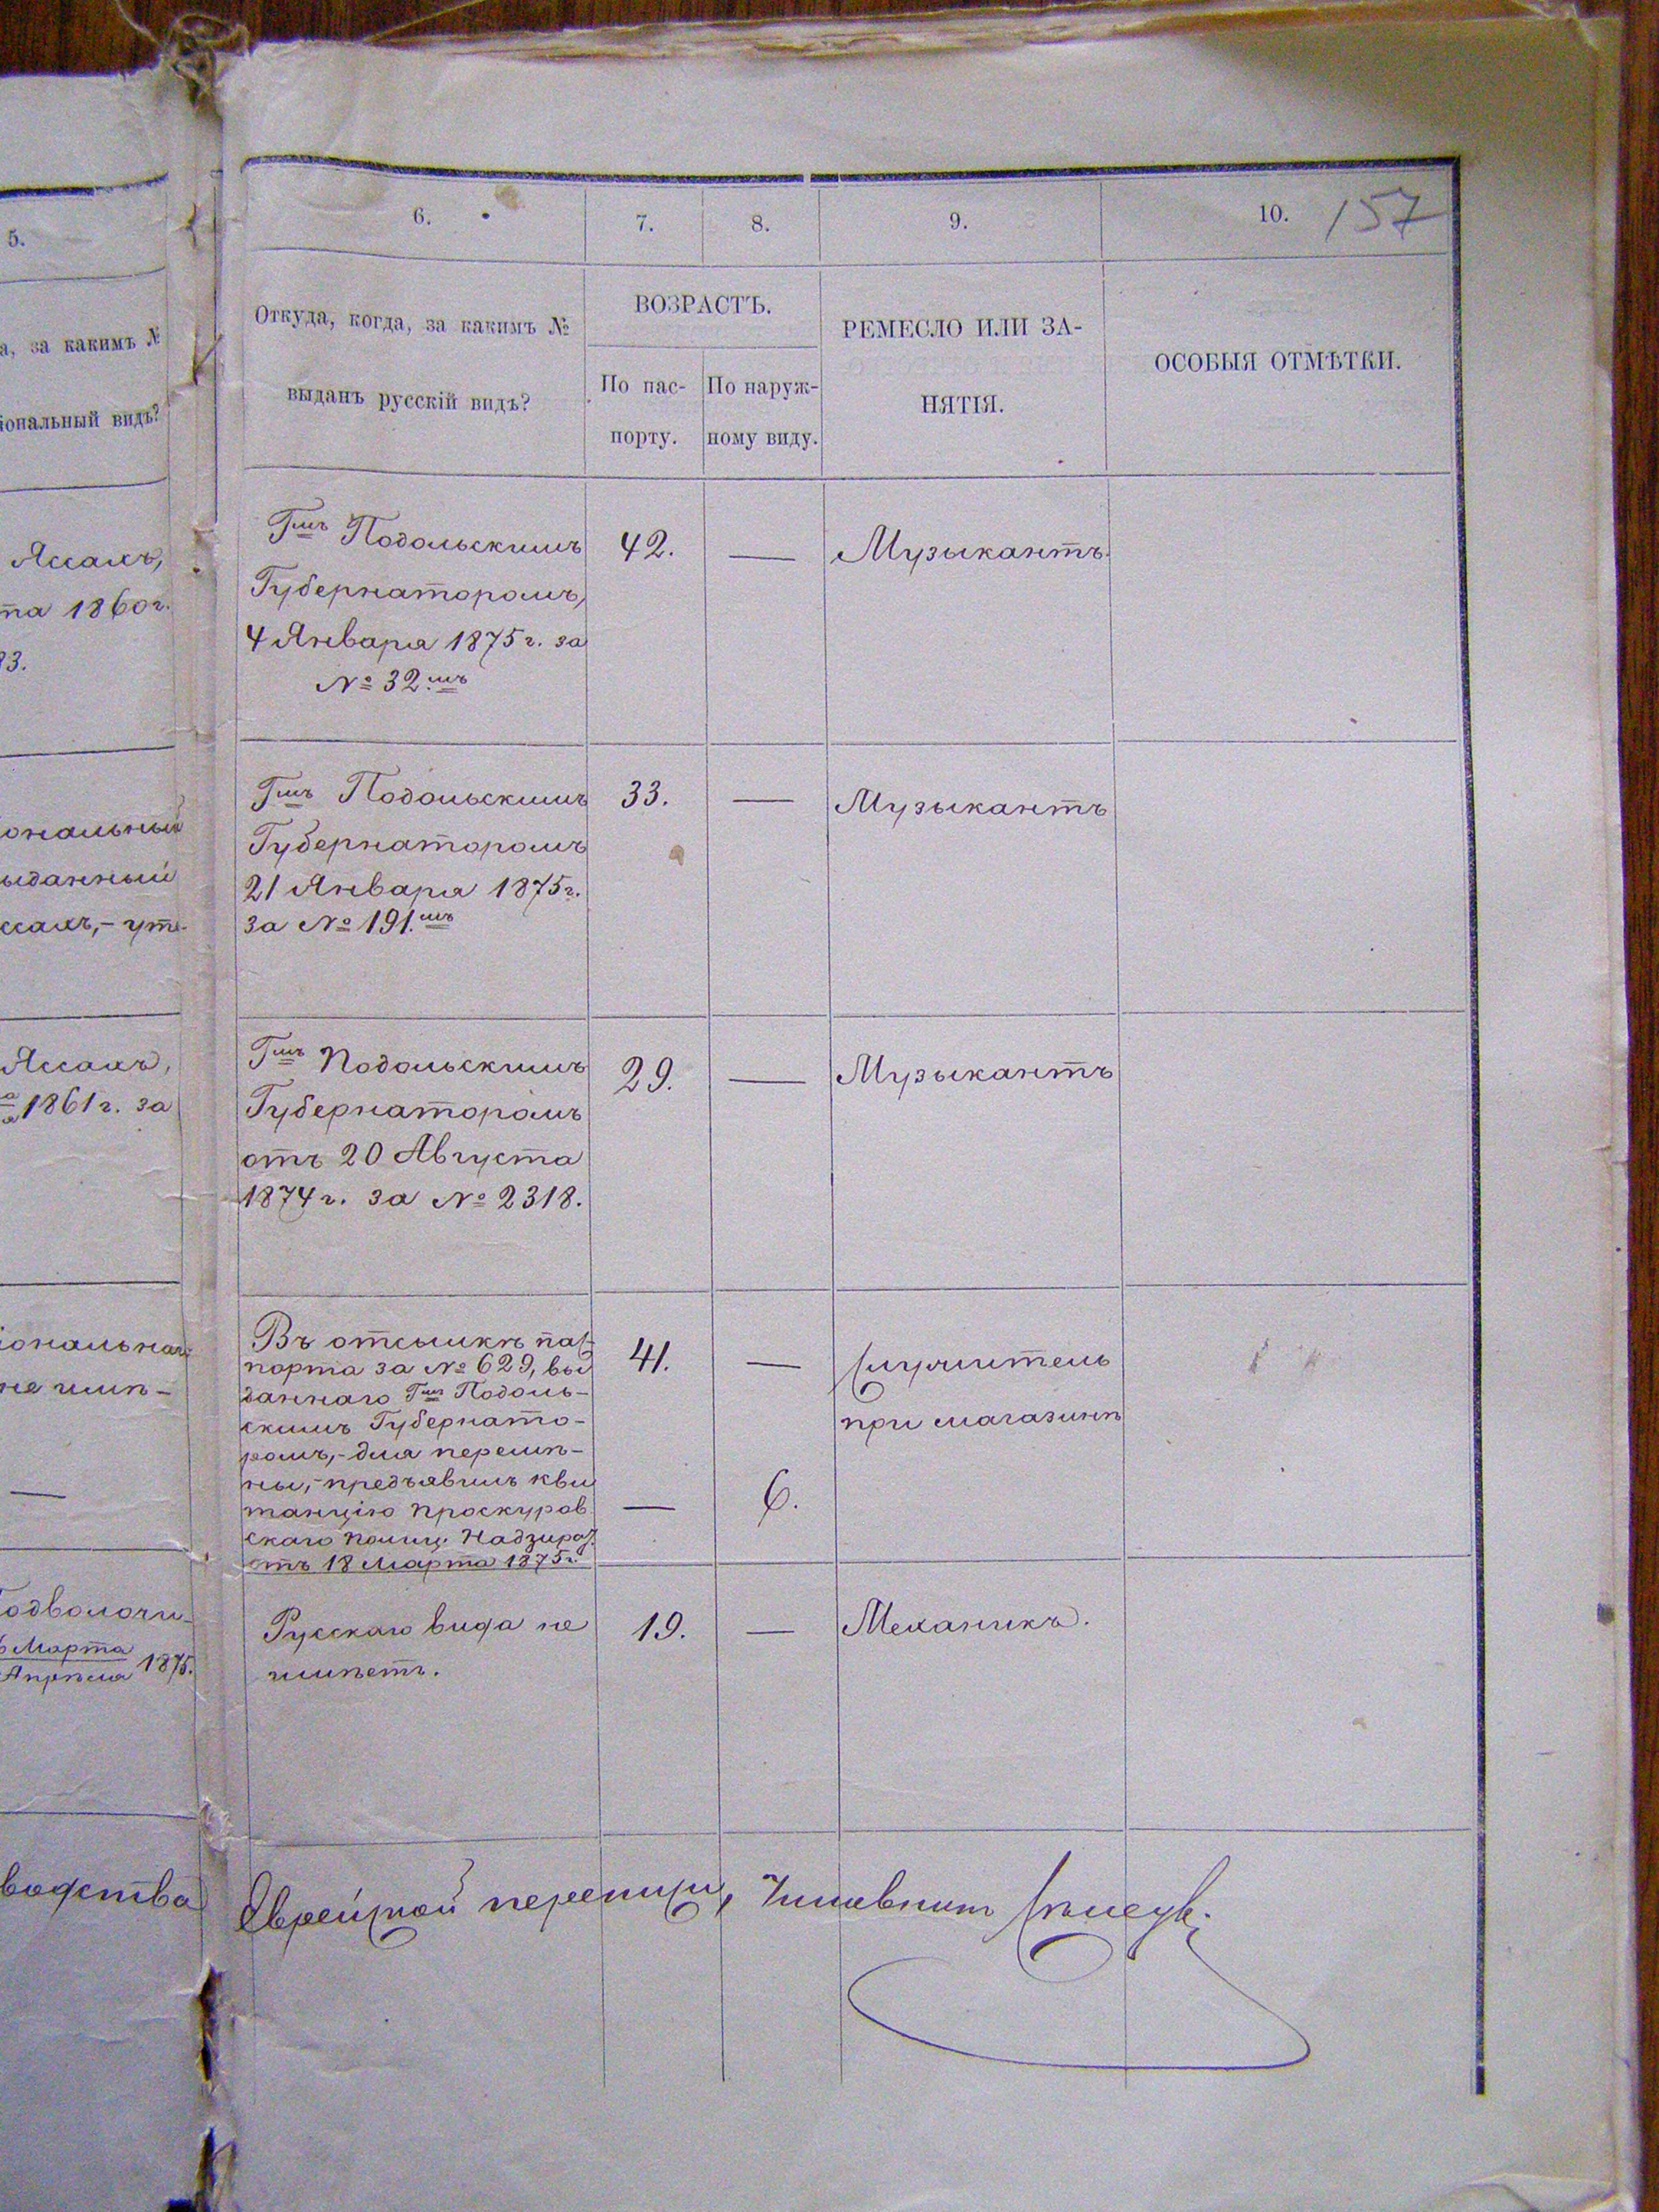 5.
а, за какимъ №
іональный видъ?
Яссахъ,
та 1860 г.
83.
ональный
ыданный
ссахъ, – уте-
Яссахъ,
1861 г. за
іональнаго
не имѣ –
—
Подволочи-
Марта
Апрѣля 1875.
водства
157
6. 7. 8. 9. 10.
Откуда, когда, за какимъ №
выданъ русскій видъ?
ВОЗРАСТЪ.
По пас-
порту.
По наруж-
ному виду.
РЕМЕСЛО ИЛИ ЗА-
НЯТІЯ.
ОСОБЫЯ ОТМѢТКИ.
Гмъ Подольскимъ
Губернаторомъ,
4 Января 1875 г. за
№ 32.мъ
42. — Музыкантъ.
Гмъ Подольскимъ
Губернаторомъ
21 Января 1875 г.
за № 191.мъ
33. — Музыкантъ
Гмъ Подольскимъ
Губернаторомъ
отъ 20 Августа
1874 г. за № 2318.
29. — Музыкантъ
Въ отсылкѣ пас-
порта за № 629, вы
даннаго Гмъ Подоль-
скимъ Губернато-
ромъ, – для перемѣ-
ны, – предъявилъ кви
танцію Проскуров
скаго Полиц. Надзират.
отъ 18 Марта 1875 г.
41. — Служитель
при магазинѣ
— 6.
Русскаго вида не
имѣетъ.
19. — Механикъ.
Еврейской переписи, Чиновникъ